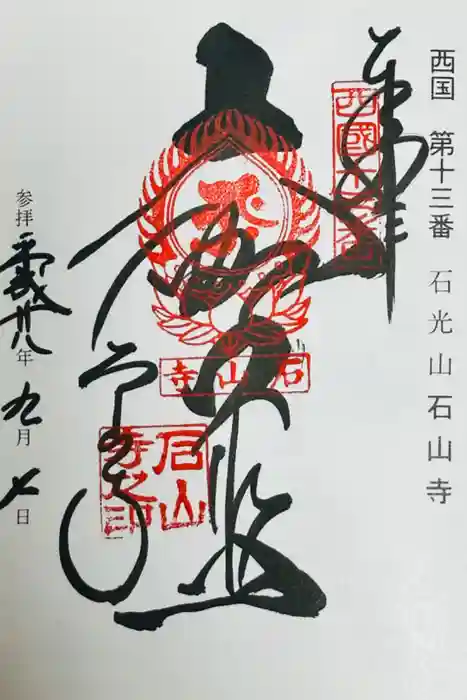 西国 第十三番 石光山石山寺
奉拝
西國十三番
大悲殿
石山寺
石山寺
石山寺之印
参拝 平成廿八年 九月 七日